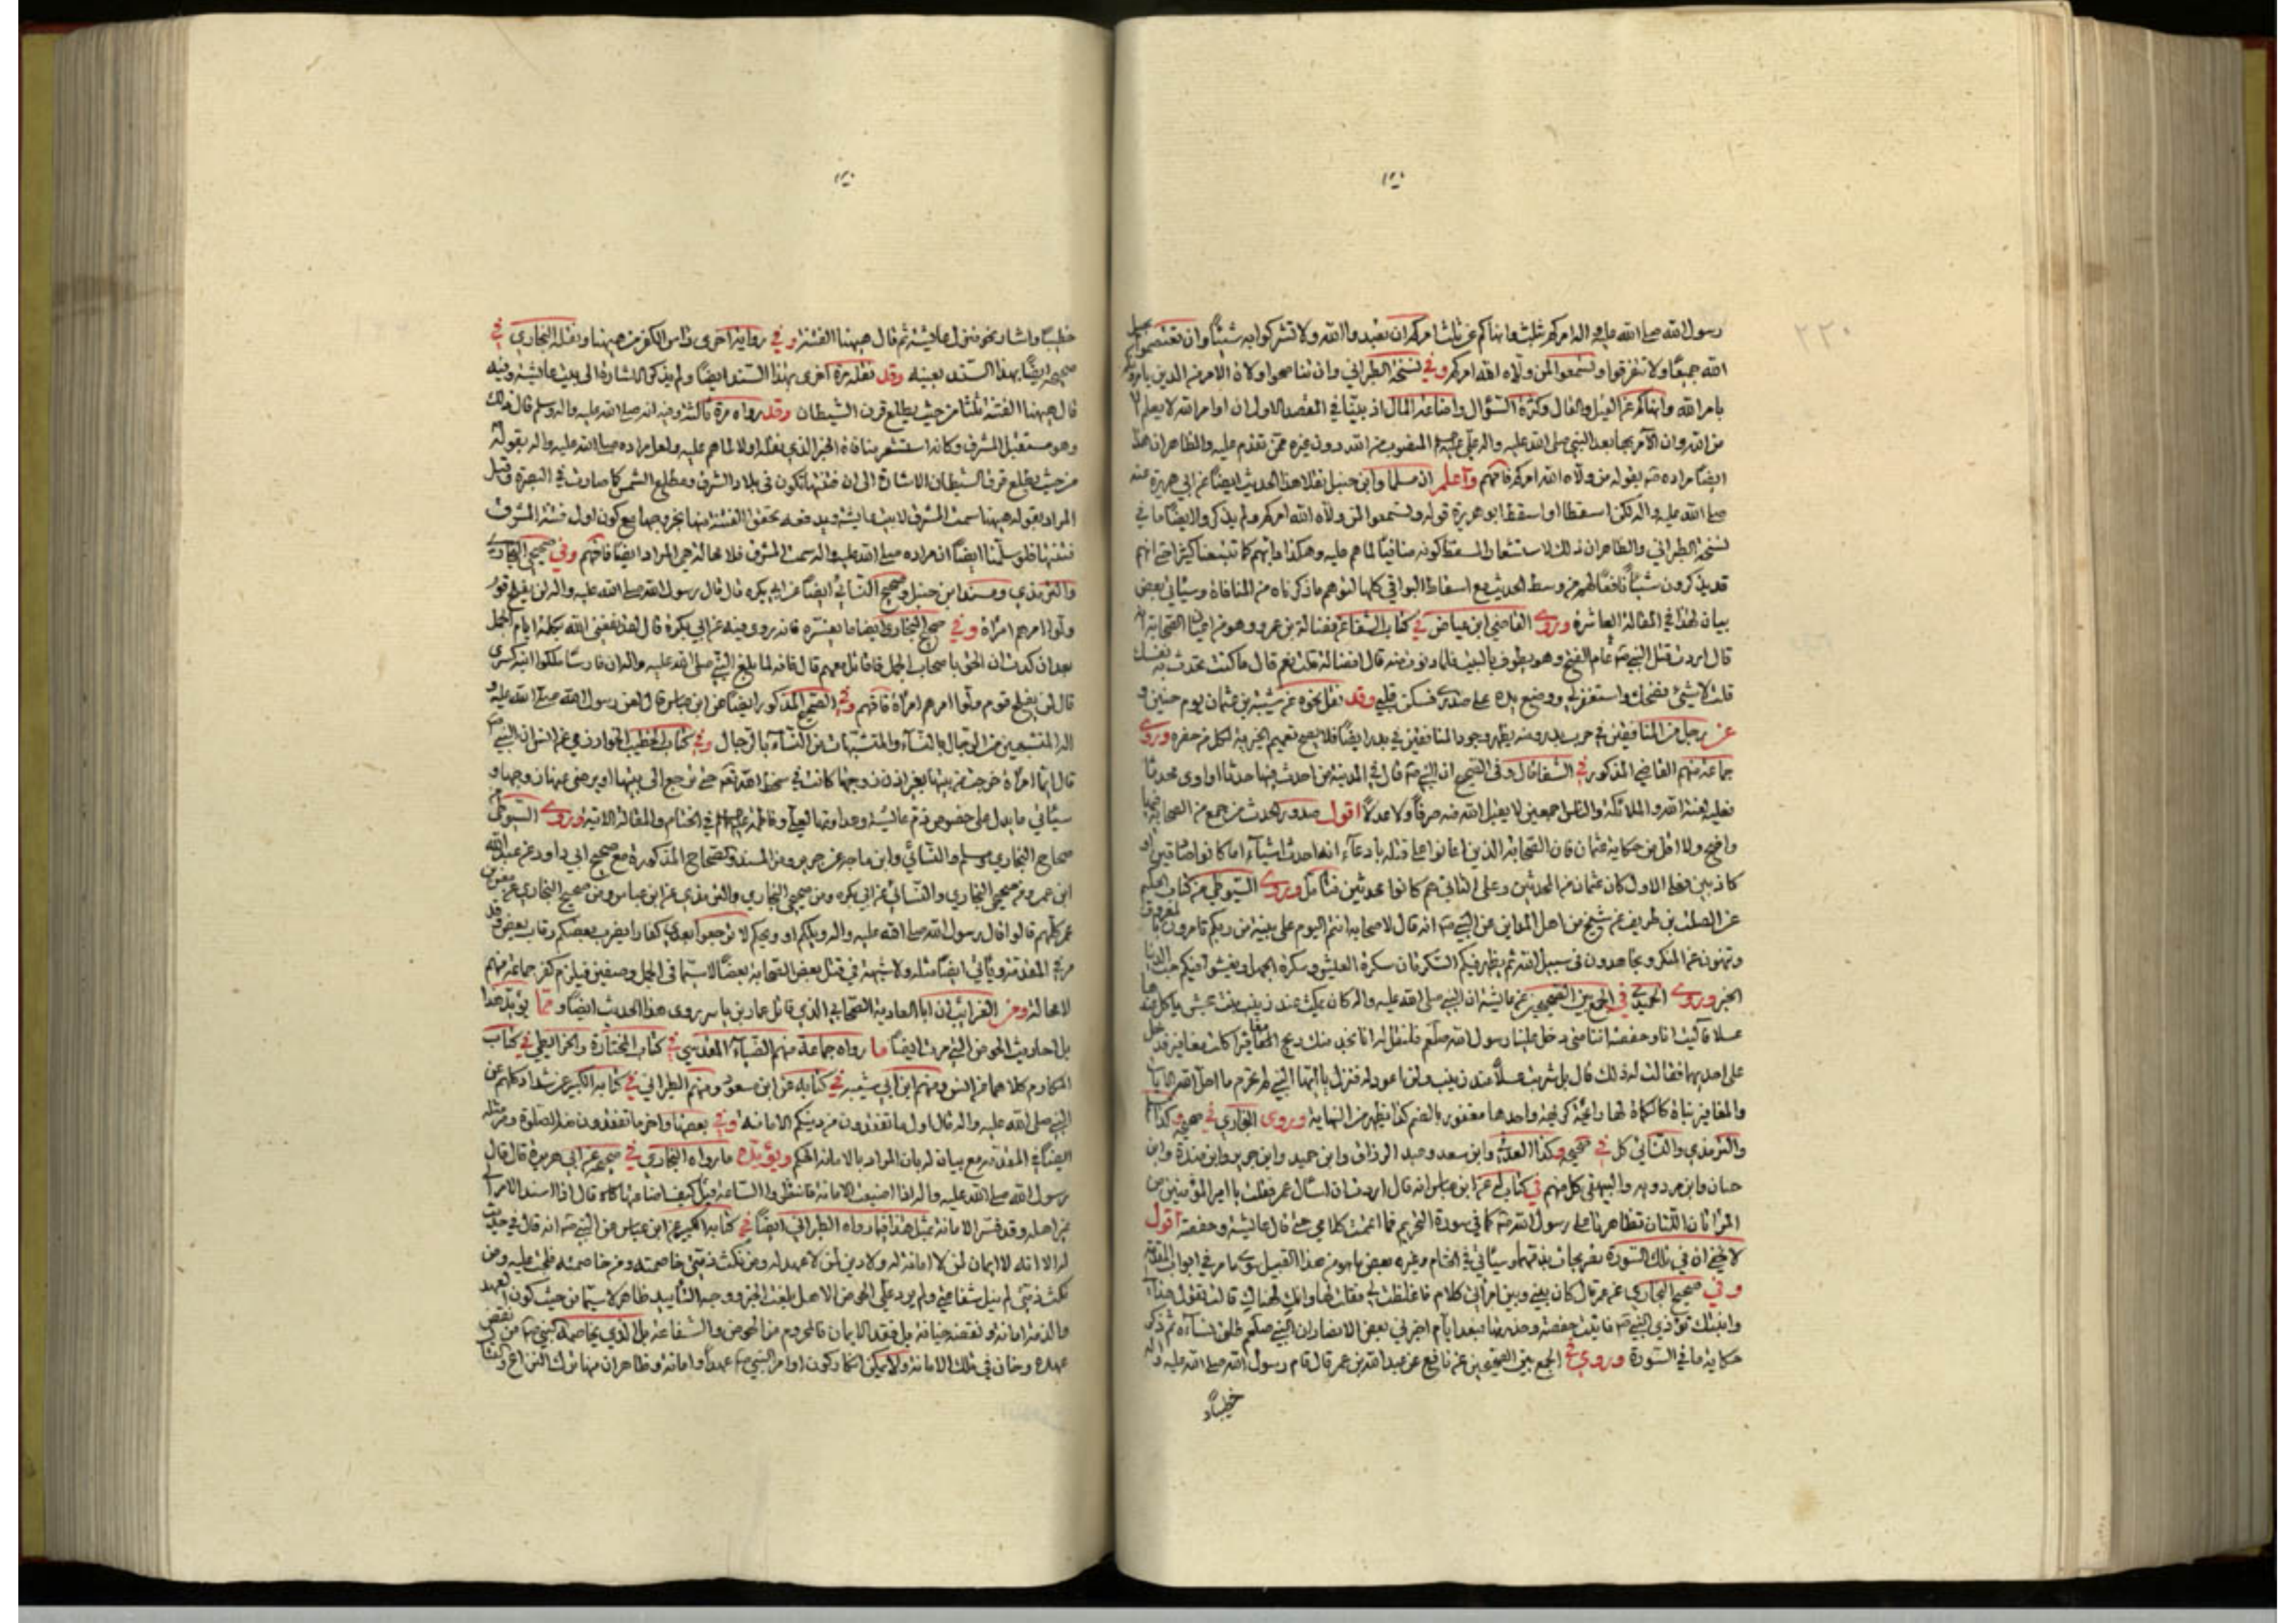 ٢٢٠
رسول الله صلى الله عليه واله امركم بثلث وانهاكم عن ثلث امركم ان تعبدوا الله ولا تشركوا به شيئاً وان تعتصموا بحبل
الله جميعاً ولا تفرقوا وتسمعوا لمن ولاه الله امركم وفي نسخة الطبراني وان تناصحوا ولاة الامر من الذين يأمرونكم
بامر الله وانهاكم عن القيل والقال وكثرة السؤال واضاعة المال اذ بينّا في المقصد الاول ان اوامر الله لا يعلم
من الله وان الآمر بها بعد النبي صلى الله عليه واله علي المنصوب من الله دون غيره ممن تقدم عليه والظاهر ان هذا
ايضاً مراده بقوله من ولاه الله امركم فافهم واعلم ان مسلما وابن حنبل نقلا هذا الحديث ايضاً عن ابي هريرة عنه
صلى الله عليه واله لكن اسقطا او اسقط ابو هريرة قوله وتسمعوا لمن ولاه الله امركم ولم يذكروا ايضاً ما في
نسخة الطبراني والظاهر ان ذلك لاستشعار المسقط كونه منافياً لما هم عليه وهكذا دأبهم كما تتبعنا كثيراً حتى انهم
قد يذكرون شيئاً نافعاً لهم من وسط الحديث مع اسقاط البواقي كلها لتوهم ما ذكرناه من المنافاة وسيأتي بعض
بيان لهذا في المقالة العاشرة وروى القاضي ابن عياض في كتاب الشفا عن فضالة بن عمرو وهو من الصحابة
قال اردت قتل النبي عام الفتح وهو يطوف بالبيت فلما دنوت منه قال افضالة قلت نعم قال ما كنت تحدث به نفسك
قلت لا شيء فضحك واستغفر لي ووضع يده على صدري فسكن قلبي وقد نقل نحوه عن شيبة بن عثمان يوم حنين و
عن رجل من المنافقين في حرب بدر ومنه يظهر وجود المنافقين في بدر ايضاً فلا يصح تعميم الخيرية لكل من حضره وروى
جماعة منهم القاضي المذكور في الشفا قال وفي الصحيح ان النبي قال في المدينة من احدث فيها حدثا او اوى محدثا
فعليه لعنة الله والملائكة والناس اجمعين لا يقبل الله منه صرفاً ولا عدلاً اقول صدور الحدث من جمع من الصحابة
واضح ولا اقل من حكاية عثمان فان الصحابة الذين اعانوا على قتله بادعاء انه احدث اشياء اما كانوا صادقين او
كاذبين فعلى الاول كان عثمان من المحدثين وعلى الثاني هم كانوا محدثين فتأمل وروى السيوطي من كتاب الحكيم
عن الصلت بن طريف عن شيخ من اهل المداين عن النبي انه قال لاصحابه انتم اليوم على بينة من ربكم تأمرون بالمعروف
وتنهون عن المنكر وتجاهدون في سبيل الله ثم يظهر فيكم السكرتان سكرة العيش وسكرة الجهل ويفشو فيكم حب الدنيا
الخبر وروى الحميدي في الجمع بين الصحيحين عن عايشة ان النبي صلى الله عليه واله كان يمكث عند زينب بنت جحش ياكل عندها
عسلا قالت انا وحفصة ايتنا متى دخل عليها رسول الله صلعم فلتقل له انا نجد منك ريح المغافير اكلت مغافير فدخل
على احديهما فقالت له ذلك قال بل شربت عسلاً عند زينب ولن اعود له فنزل يا ايها النبي لم تحرم ما احل الله لك الآيات
وروى البخاري في صحيحه وكذا
والترمذي والنسائي كل في صحيحه وكذا العدني وابن سعد وعبد الرزاق وابن حميد وابن جرير وابن منذر وابن
حبان وابن مردويه والبيهقي كل منهم في كتاب له عن ابن عباس انه قال اردت ان اسأل عمر فقلت يا امير المؤمنين من
المرأتان اللتان تظاهرتا على رسول الله كما في سورة التحريم فما اتممت كلامي حتى قال عايشة وحفصة اقول
لا يخفى ان في تلك السورة تصريحات بذمهما وسيأتي في الختام وغيره بعض ما هو من هذا القبيل سوى ما مر في ابواب المقدمة
وفي صحيح البخاري عن عمر قال كان بيني وبين امرأتي كلام فاغلظت لي فقلت لها وانك لهناك قالت تقول هذا
وابنتك تؤذي النبي فاتيت حفصة وحذرتها فبعد ايام اخبرني بعض الانصار ان النبي صلعم طلق نساءه ثم ذكر
حكاية ما في السورة وروى في الجمع بين الصحيحين عن نافع عن عبد الله بن عمر قال قام رسول الله صلى الله عليه واله
خطيباً
خطيباً واشار نحو منزل عايشة ثم قال ههنا الفتنة وفي رواية اخرى رأس الكفر من ههنا ونقله البخاري في
صحيحه ايضاً بهذا السند بعينه وقد نقله مرة اخرى بهذا السند ايضاً ولم يذكر الاشارة الى بيت عايشة وفيه
قال ههنا الفتنة ثلثا من حيث يطلع قرن الشيطان وقد رواه مرة ثالثة وفيه انه صلى الله عليه واله وسلم قال ذلك
وهو مستقبل المشرق وكانه استشعر منافاة الخبر الذي نقله اولا لما هم عليه ولعل مراده صلى الله عليه واله بقوله
من حيث يطلع قرن الشيطان الاشارة الى ان فتنتها تكون في بلاد الشرق ومطلع الشمس كما صارت في البصرة وقيل
المراد بقوله ههنا سمت المشرق لا بيت عايشة ويدفعه تحقق الفتنة منها بخروجها مع كون اول فتنة المشرق
فتنتها فلو سلمنا ايضاً ان مراده صلى الله عليه واله سمت المشرق فلا محالة هي المراد ايضاً فافهم وفي صحيحي البخاري
والترمذي ومسند ابن حنبل وصحيح النسائي ايضاً عن ابي بكرة قال قال رسول الله صلى الله عليه واله لن يفلح قوم
ولّوا امرهم امرأة وفي صحيح البخاري ايضاً ما يفسره فانه روى فيه عن ابي بكرة قال لقد نفعني الله بكلمة ايام الجمل
بعد ان كدت ان الحق باصحاب الجمل فاقاتل معهم قال فانه لما بلغ النبي صلى الله عليه واله ان فارسا ملكوا ابنة كسرى
قال لن يفلح قوم ولّوا امرهم امرأة فافهم وفي الصحيح المذكور ايضاً عن ابن عباس قال لعن رسول الله صلى الله عليه و
اله المتشبهين من الرجال بالنساء والمتشبهات من النساء بالرجال وفي كتاب الخطيب الخوارزمي عن انس ان النبي
قال ايما امرأة خرجت من بيتها بغير اذن زوجها كانت في سخط الله تعالى حتى ترجع الى بيتها او يرضى عنها زوجها و
سيأتي ما يدل على خصوص ذم عايشة وعداوتها لعلي وفاطمة في الختام والمقالة الاتية وروى السيوطي من
صحاح البخاري ومسلم والنسائي وابن ماجه عن جرير ومن المسند والصحاح المذكورة مع صحيح ابي داود عن عبد الله
ابن عمر ومن صحيحي البخاري والنسائي عن ابي بكرة ومن صحيحي البخاري والترمذي عن ابن عباس ومن صحيح البخاري عن
عمر كلهم قالوا قال رسول الله صلى الله عليه واله ويلكم او ويحكم لا ترجعوا بعدي كفارا يضرب بعضكم رقاب بعض وقد
مر في المقدمة ويأتي ايضاً مثله ولا شبهة في قتل بعض الصحابة بعضاً لا سيما في الجمل وصفين فيلزم كفر جماعة منهم
لا محالة ومن الغرائب ان ابا العادية الصحابي الذي قاتل عمار بن ياسر روى هذا الحديث ايضاً ومما يؤيد هذا
بل احاديث الحوض التي مرت ايضاً ما رواه جماعة منهم الضياء المقدسي في كتاب المختارة والخرايطي في كتاب
المكارم كلاهما عن انس ومنهم ابن ابي شيبة في كتابه عن ابن مسعود ومنهم الطبراني في كتابه الكبير عن شداد كلهم عن
النبي صلى الله عليه واله قال اول ما تفقدون من دينكم الامانة وفي بعضها واخر ما تفقدون منه الصلوة ومر مثله
ايضاً في المقدمة مع بيان ان المراد بالامانة الحكم ويؤيده ما رواه البخاري في صحيحه عن ابي هريرة قال قال
رسول الله صلى الله عليه واله اذا ضيعت الامانة فانتظروا الساعة قيل كيف اضاعتها قال اذا اسند الامر الى
غير اهله وقد فسر الامانة بمثل هذا فيما رواه الطبراني ايضاً في كتابه الكبير عن ابن عباس عن النبي انه قال في حديث
له الا انه لا ايمان لمن لا امانة له ولا دين لمن لا عهد له ومن نكث ذمتي خاصمته ومن خاصمته فلجت عليه ومن
نكث ذمتي لم ينل شفاعتي ولم يرد علي الحوض الا هل بلغت الخبر ووجه التأييد ظاهر لا سيما من حيث كون العهد
والذمة امانة ونقضه خيانة بل فقد الايمان فالمحروم من الحوض والشفاعة بل الذي يخاصمه النبي من نقض
عهده وخان في تلك الامانة ولا يمكن انكار كون اوامر النبي عهداً وامانة وظاهر ان منها ترك النزاع و